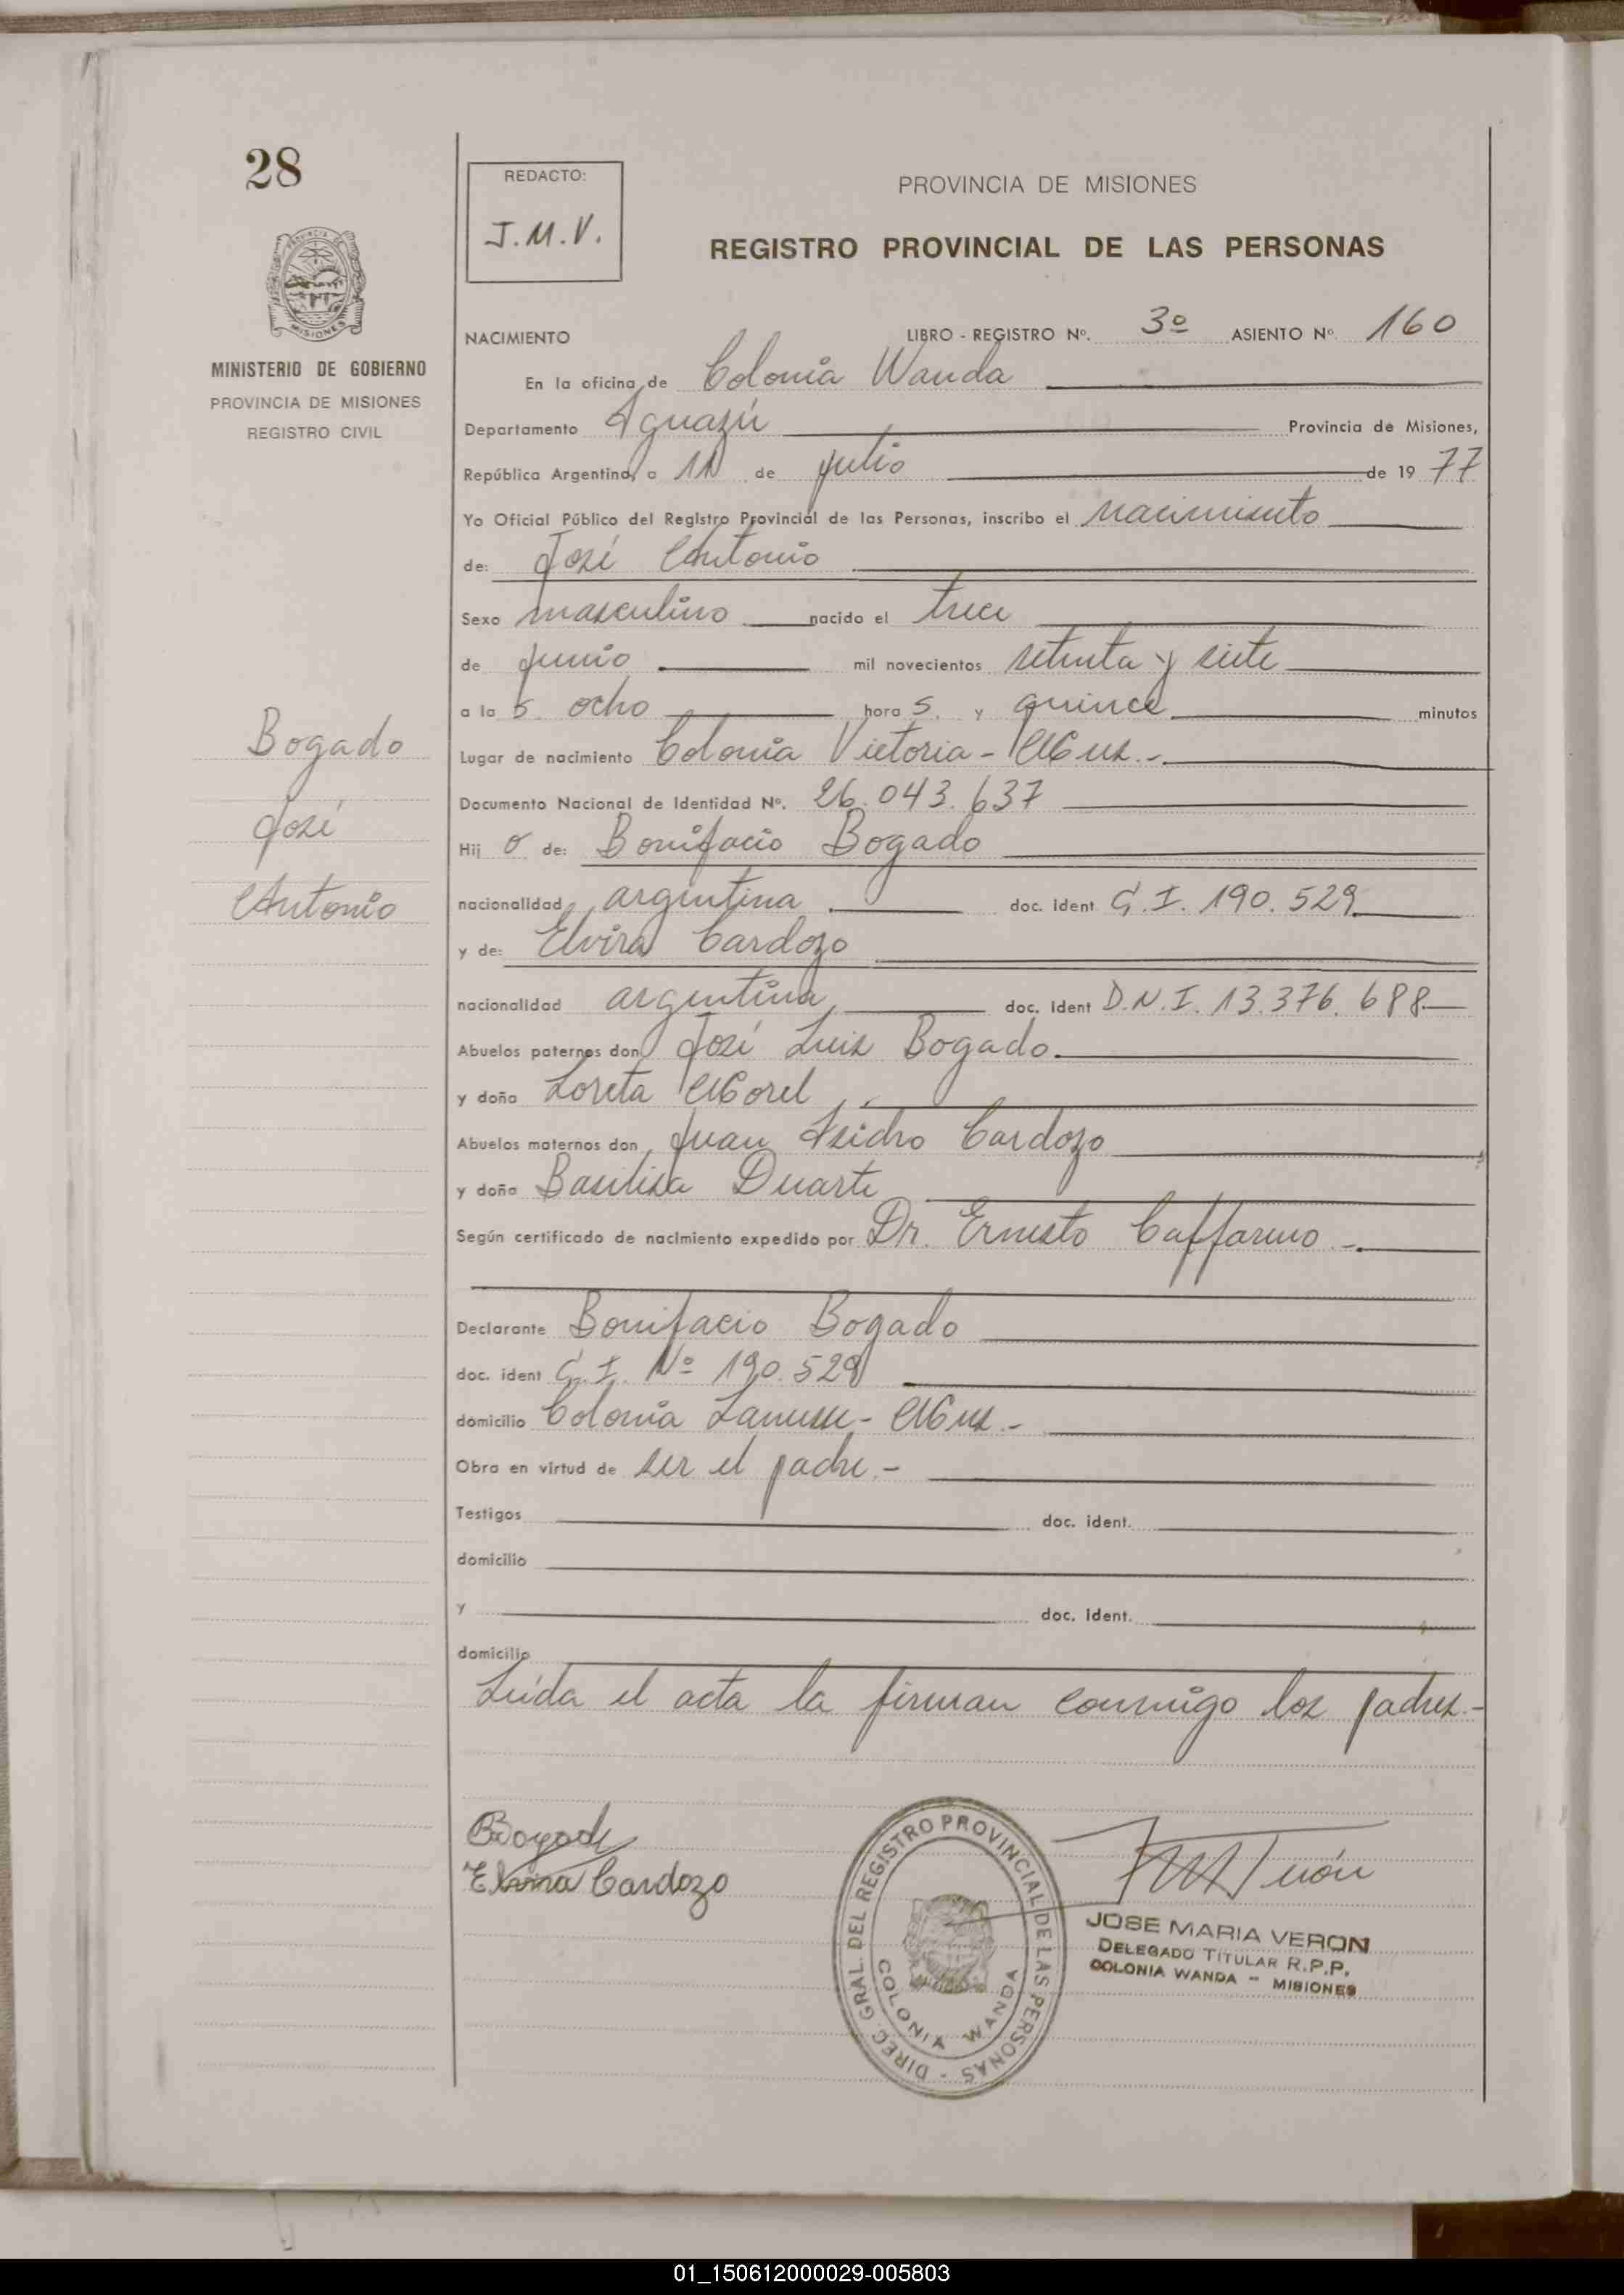 28
REDACTO:
J.M.V.
PROVINCIA DE MISIONES
REGISTRO PROVINCIAL DE LAS PERSONAS
PROVINCIA DE
MISIONES
MINISTERIO DE GOBIERNO
PROVINCIA DE MISIONES
REGISTRO CIVIL
NACIMIENTO LIBRO - REGISTRO Nº. 3º ASIENTO Nº. 160
En la oficina de Colonia Wanda
Departamento Iguazú Provincia de Misiones,
República Argentina, a 11 de julio de 1977
Yo Oficial Público del Registro Provincial de las Personas, inscribo el nacimiento
de: José Antonio
Sexo masculino nacido el trece
de junio mil novecientos setenta y siete
a la s. ocho hora s. y quince minutos
Lugar de nacimiento Colonia Victoria - Mnes.-
Documento Nacional de Identidad Nº. 26.043.637
Hij o de: Bonifacio Bogado
nacionalidad argentina doc. ident C.I. 190.529
y de: Elvira Cardozo
nacionalidad argentina doc. ident D.N.I. 13.376.688
Abuelos paternos don José Luis Bogado
y doña Loreta Morel
Abuelos maternos don Juan Isidro Cardozo
y doña Basilisa Duarte
Según certificado de nacimiento expedido por Dr. Ernesto Caffarino.-
Declarante Bonifacio Bogado
doc. ident C.I. Nº 190.529
domicilio Colonia Lanusse - Mnes.-
Obra en virtud de ser el padre.-
Testigos doc. ident.
domicilio
y doc. ident.
domicilio
Leída el acta la firman conmigo los padres.-
Bogado
José
Antonio
BBogado
Elvira Cardozo
DIREC. GRAL. DEL REGISTRO PROVINCIAL DE LAS PERSONAS -
COLONIA WANDA
JOSE MARIA VERON
DELEGADO TITULAR R.P.P.
COLONIA WANDA - MISIONES
01_150612000029-005803